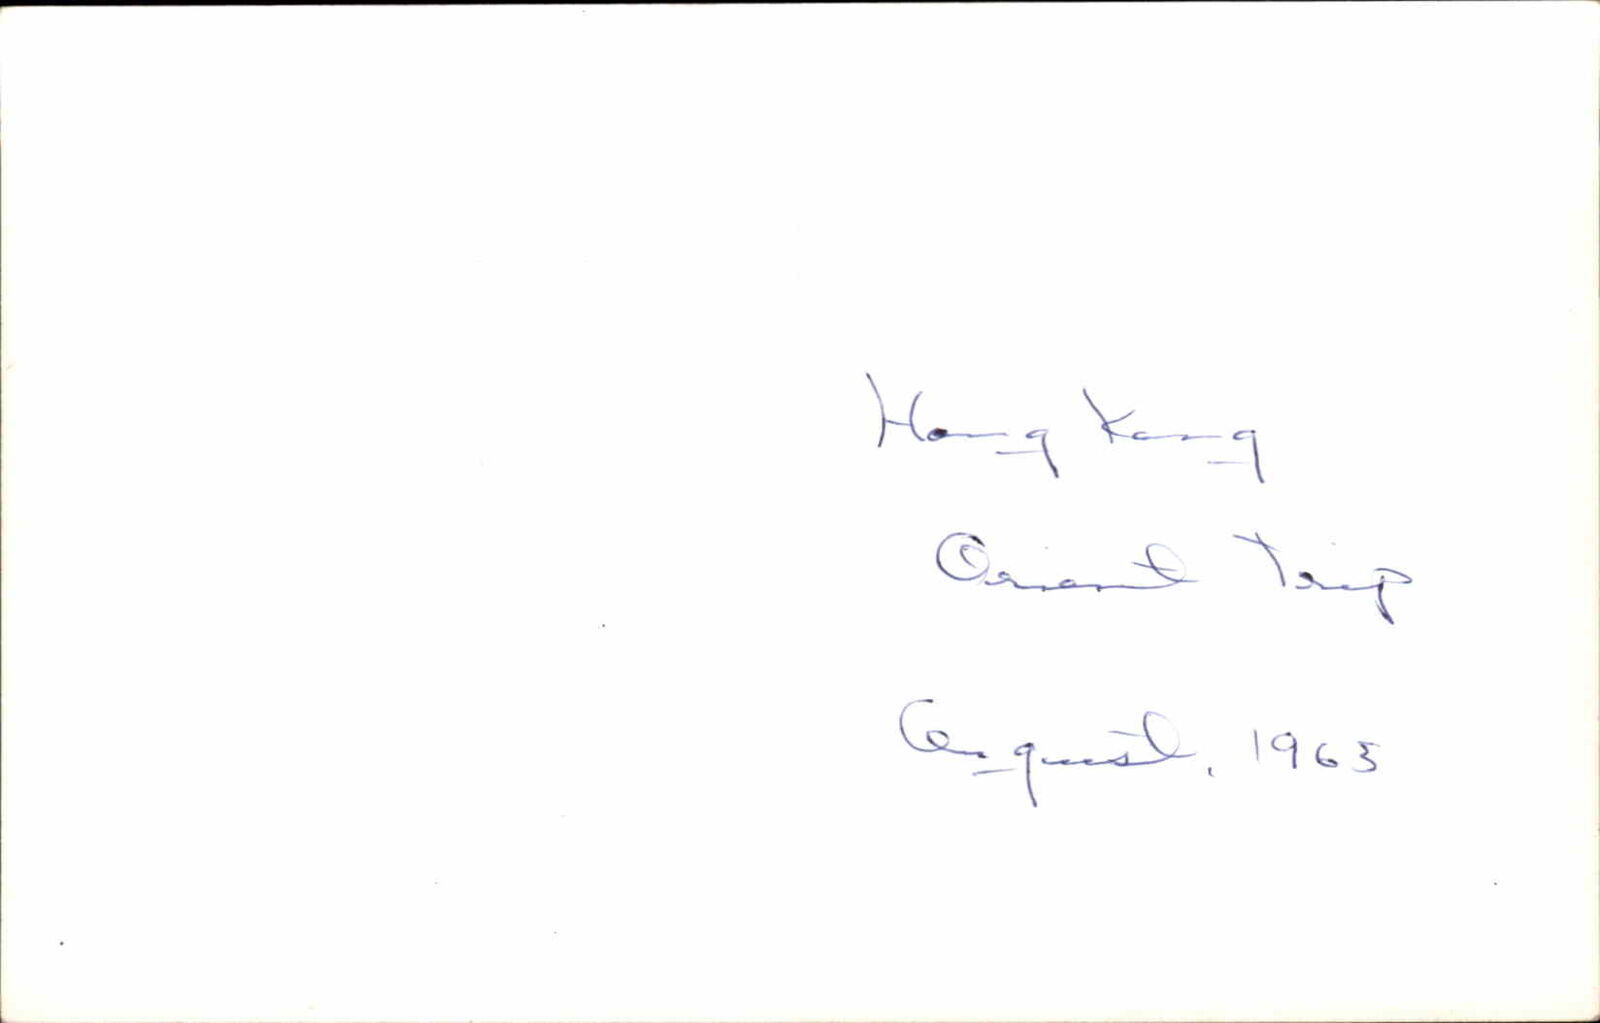 Hong Kong
Orient Trip
August, 1963